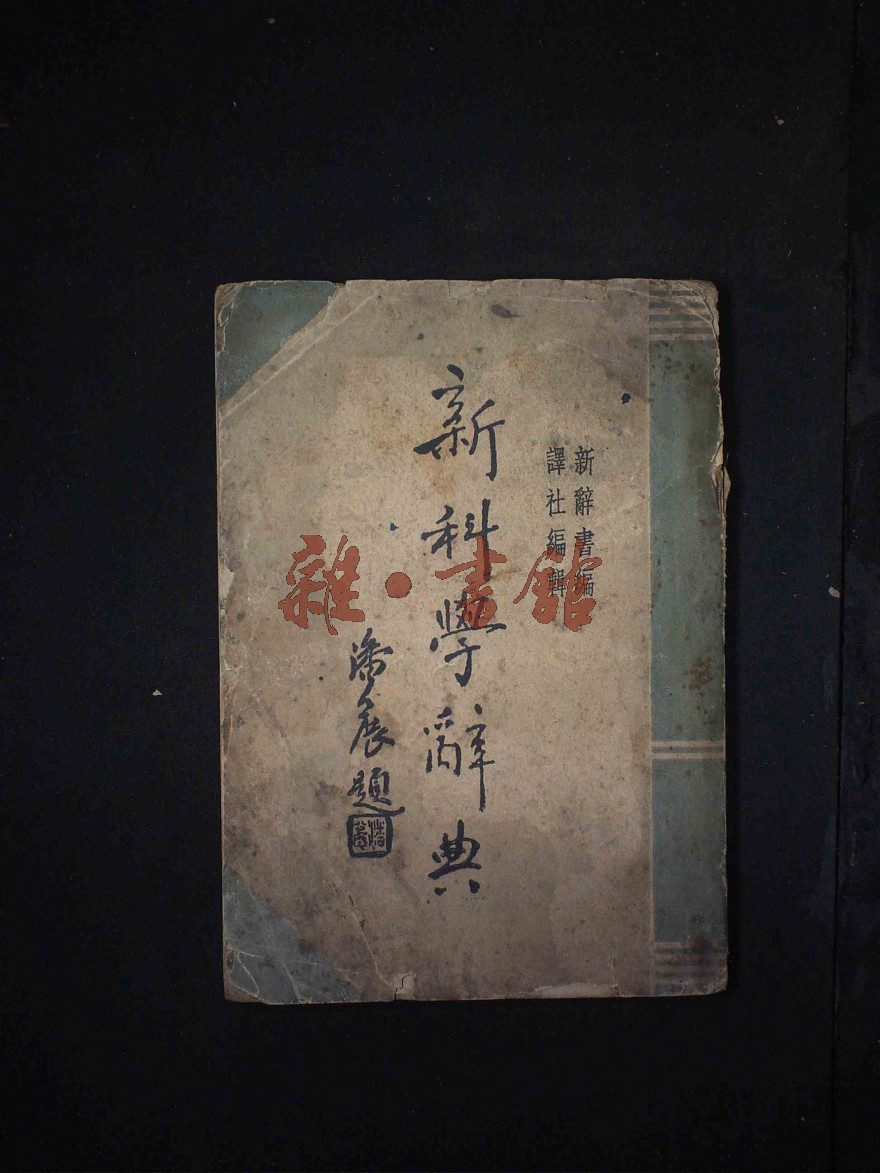 新辭書編
譯社編輯
新科學辭典
潘公展題
雜·書館